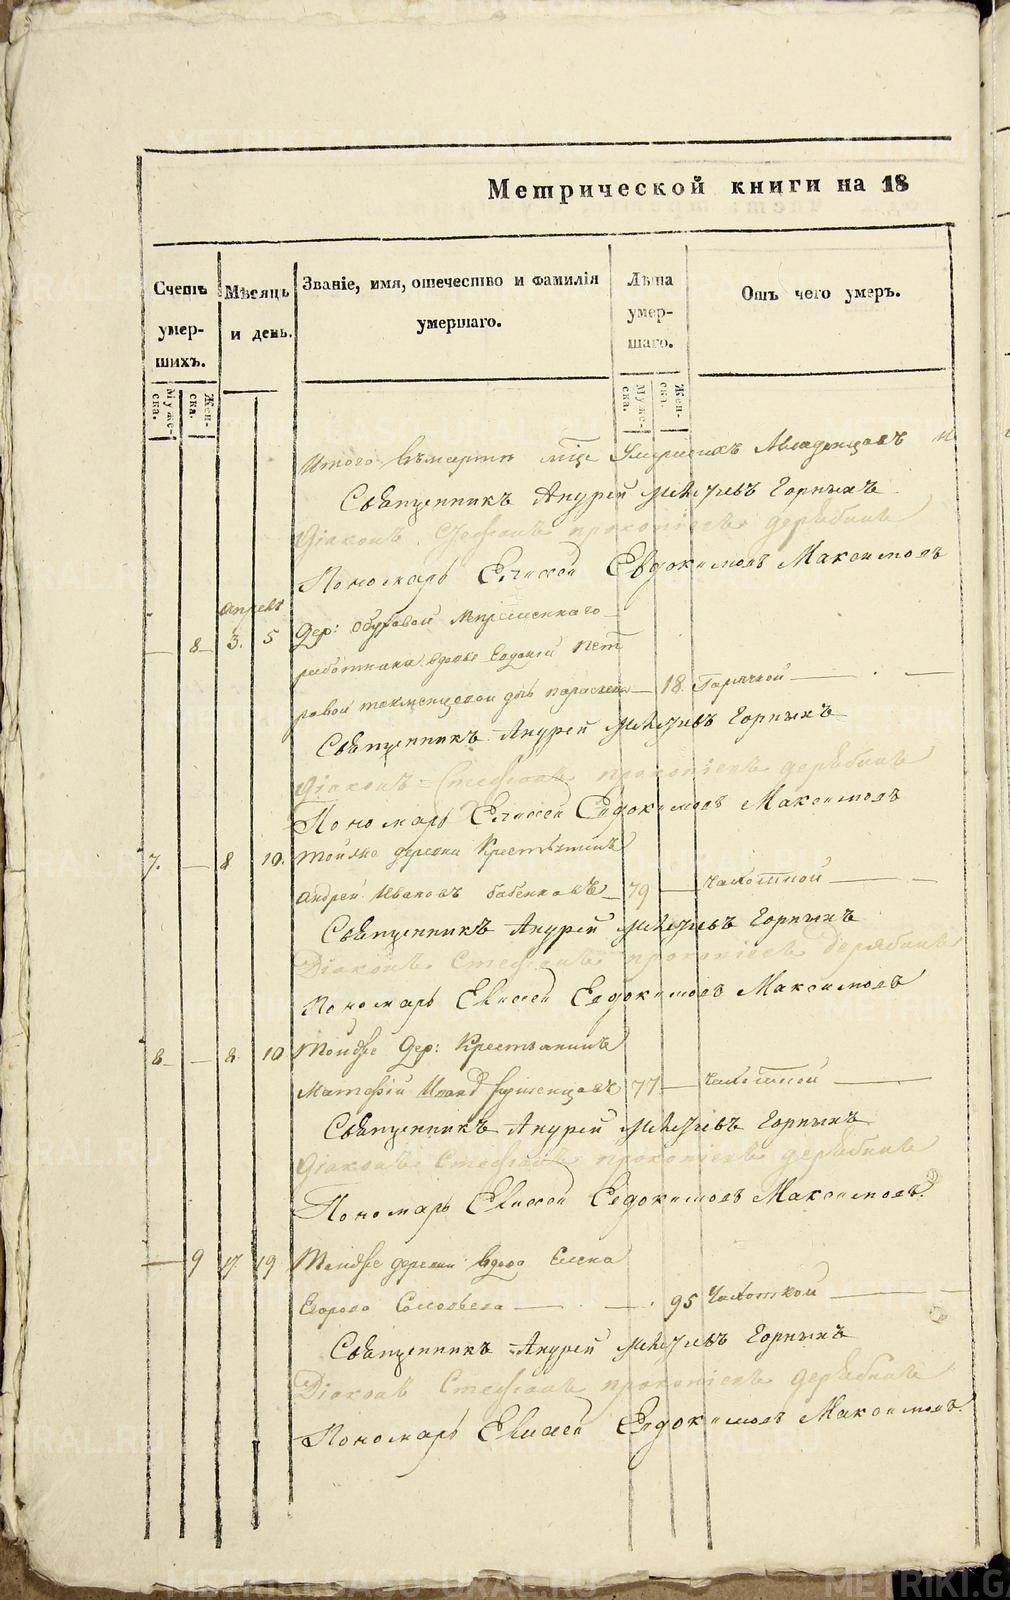 Метрической книги на 18
Счетъ умер-шихъ.
Муже-ска.
Жен-ска.
Мѣсяцъ и день.
Званіе, имя, отечество и фамилія умершаго.
Лѣта умер-шаго.
Муже-ска.
Жен-ска.
Отъ чего умеръ.
Итого въ мартѣ мцѣ Умершихъ
Священникъ Андрей Горныхъ
Діаконъ Стефанъ прокопіевъ дерябинъ
Пономарь Елисей Евдокимовъ Максимовъ
апреля
8 3. 5 Дер:
работника вдовы Евдокіи пет
ровой дочь параскева 18 Горячкой
Священникъ Андрей Горныхъ
Діаконъ Стефанъ прокопіевъ дерябинъ
Пономарь Елисей Евдокимовъ Максимовъ
7. 8 10. тойже деревни Крестьянинъ
Андрей Ивановъ бабенковъ 79 чахоткой
Священникъ Андрей Горныхъ
Діаконъ Стефанъ прокопіевъ дерябинъ
Пономарь Елисей Евдокимовъ Максимовъ
8 8 10 Тойже Дер: Крестьянинъ
Матвѣй 77 чахоткой
Священникъ Андрей Горныхъ
Діаконъ Стефанъ прокопіевъ дерябинъ
Пономарь Елисей Евдокимовъ Максимовъ.
9 17 19 Тойже деревни вдова Елена
Егорова 95 Чахоткой
Священникъ Андрей Горныхъ
Діаконъ Стефанъ прокопіевъ дерябинъ
Пономарь Елисей Евдокимовъ Максимовъ.
METRIKI.GASO-URAL.RU